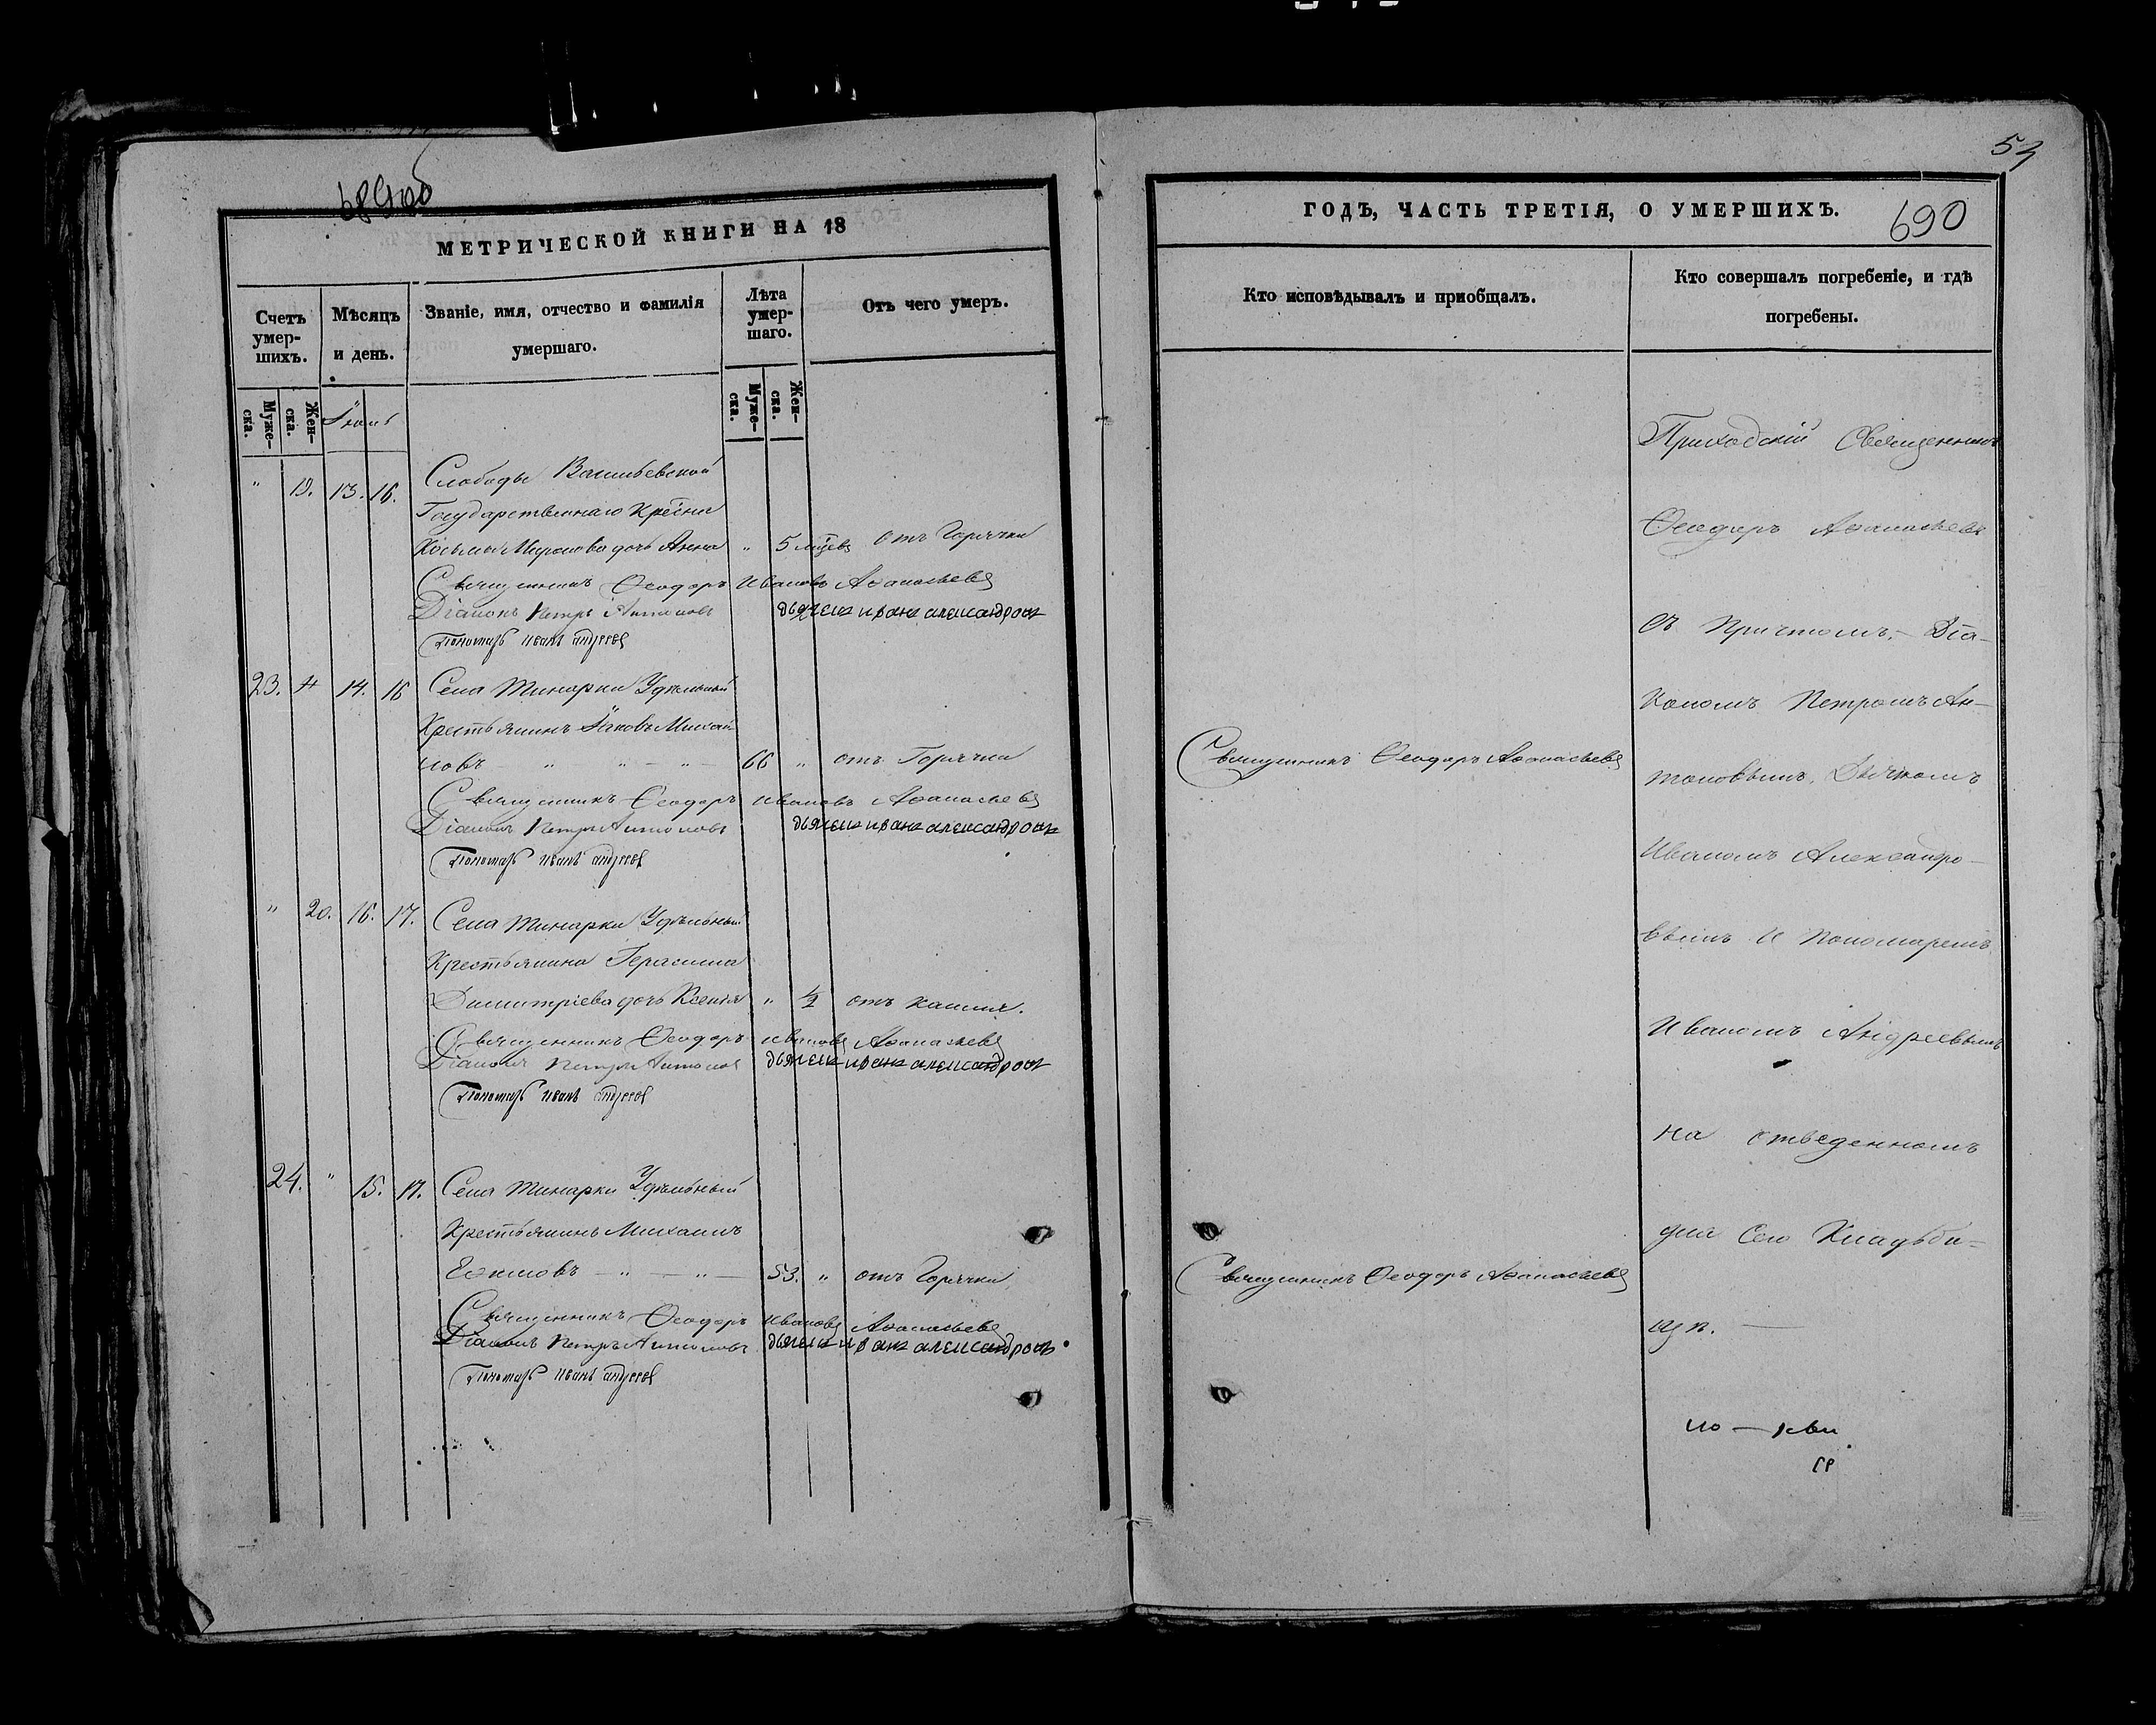 689об
МЕТРИЧЕСКОЙ КНИГИ НА 18
Счетъ умер-шихъ.
Мѣсяцъ и день.
Званіе, имя, отчество и фамилія умершаго.
Лѣта умер-шаго.
Отъ чего умеръ.
Муже-ска.
Жен-ска.
Муже-ска.
Жен-ска.
" 19. 13. 16. Слободы Васильевской
Государственнаго Крестнина
Косьмы Миронова дочь Анна " 5 мцевъ отъ Горячки
Священникъ Ѳеодоръ Ивановъ Аѳанасьевъ
Діаконъ Петръ Антоновъ дьячекъ иванъ александровъ
Пономарь иванъ андреевъ
23. 14. 16 Села Тинарки Удѣльный
Крестьянинъ Іаковъ Михай
ловъ " " " 66 " отъ Горячки
Священникъ Ѳеодоръ Ивановъ Аѳанасьевъ
Діаконъ Петръ Антоновъ дьячекъ иванъ александровъ
Пономарь иванъ андреевъ
" 20. 16. 17. Села Тинарки Удѣльный
Крестьянина Герасима
Димитріева дочь Ксенія " ½ отъ кашля.
Священникъ Ѳеодоръ Ивановъ Аѳанасьевъ
Діаконъ Петръ Антоновъ дьячекъ иванъ александровъ
Пономарь иванъ андреевъ
24. " 15. 17. Села Тинарки Удѣльный
Крестьянинъ Михаилъ
Еѳимовъ — " — " — 53. " отъ Горячки
Священникъ Ѳеодоръ Ивановъ Аѳанасьевъ
Діаконъ Петръ Антоновъ дьячекъ иванъ александровъ
Пономарь иванъ андреевъ
690
ГОДЪ, ЧАСТЬ ТРЕТІЯ, О УМЕРШИХЪ.
Кто исповѣдывалъ и приобщалъ.
Кто совершалъ погребеніе, и гдѣ погребены.
Священникъ Ѳеодоръ Аѳанасьевъ
Священникъ Ѳеодоръ Аѳанасьевъ
Приходскій Священникъ
Ѳеодоръ Аѳанасьевъ
съ Причтомъ: — Діа-
кономъ Петромъ Ан-
тоновымъ, Дьячкомъ
Иваномъ Александро-
вымъ и Пономаремъ
Иваномъ Андреевымъ
на отведенномъ
для сего Кладьби-
щѣ. —